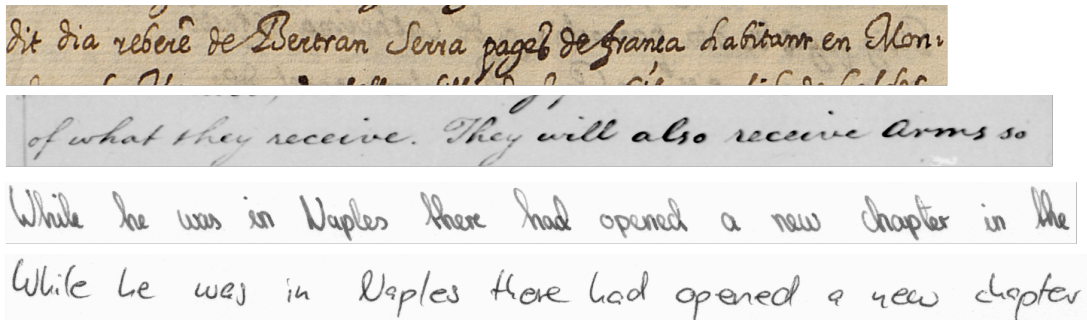 dit dia rebere de Bertran Serra pages de frança habitant en Mon:
of what they receive. They will also receive arms so
While he was in Naples there had opened a new chapter in the
While he was in Naples there had opened a new chapter